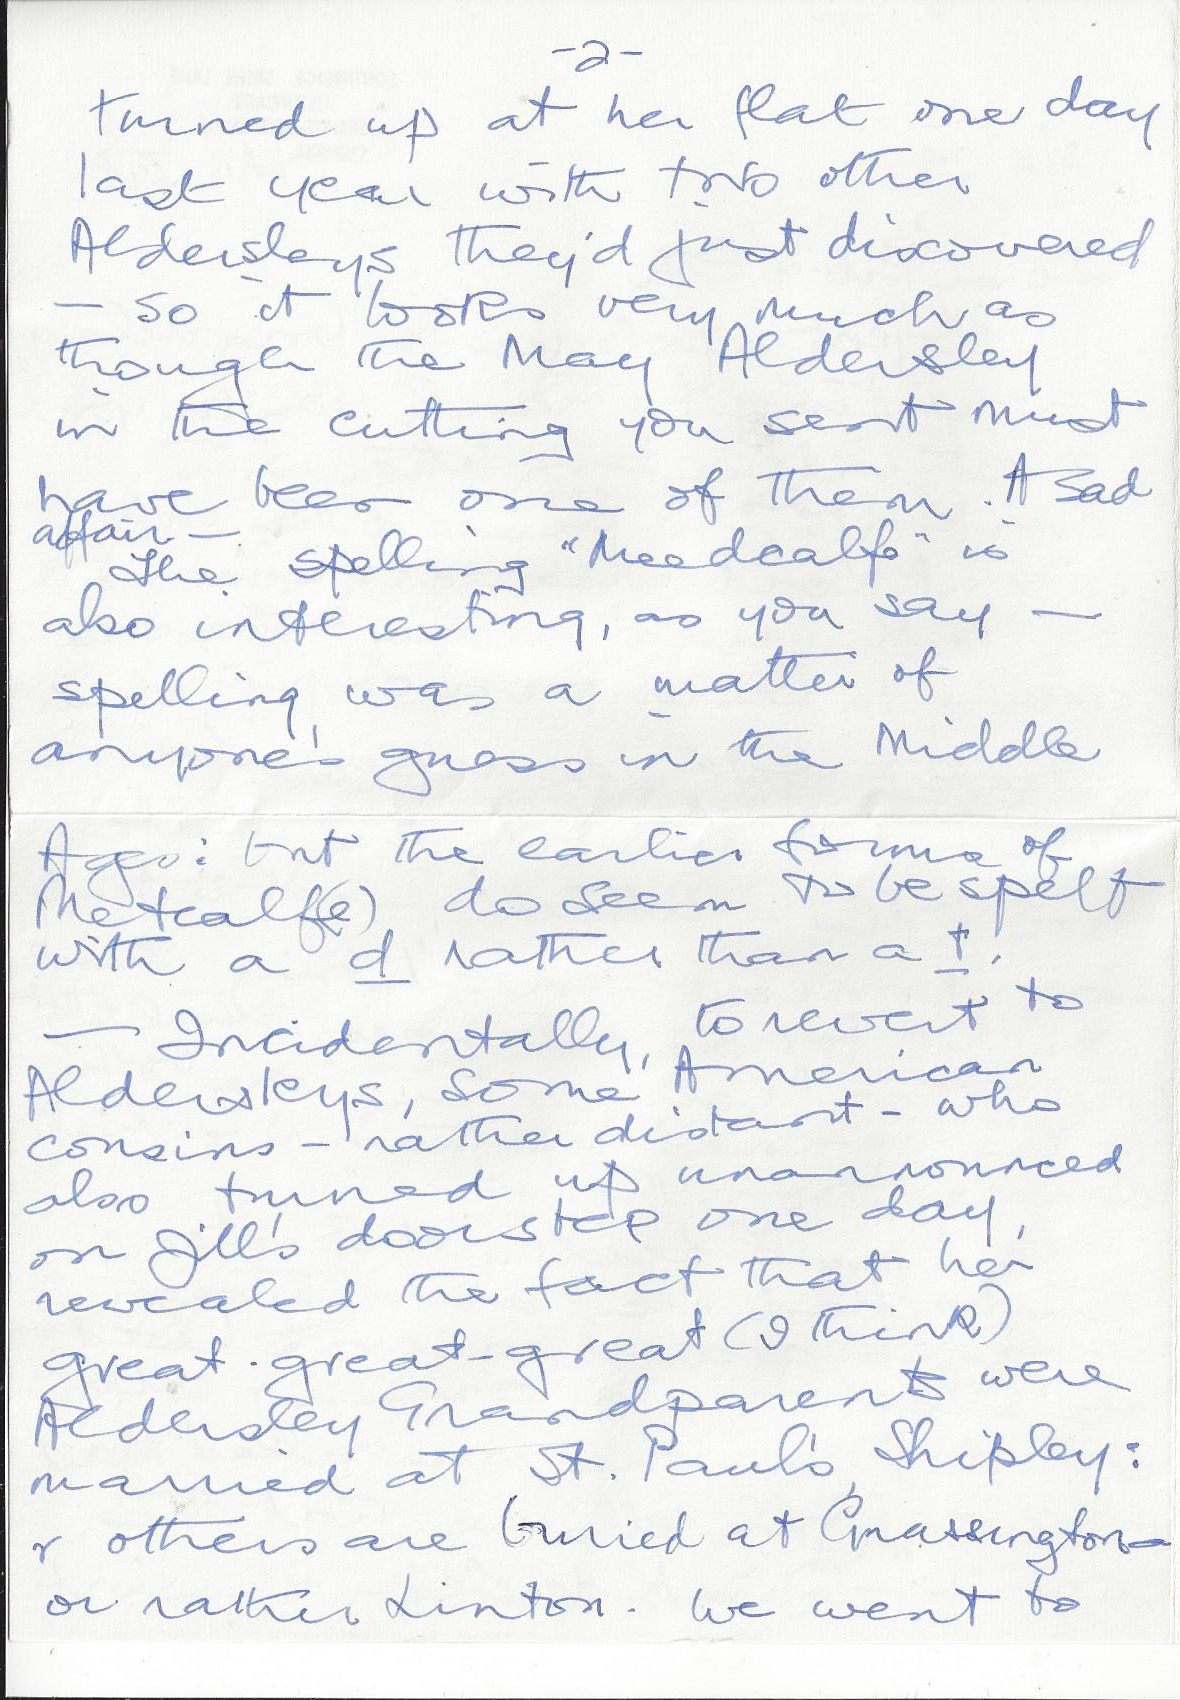 -2-
turned up at her flat one day
last year with two other
Aldersleys they'd just discovered
- so it looks very much as
though the May Aldersley
in the cutting you sent must
have been one of them. A sad
affair -
The spelling "Meedcalfe" is
also interesting, as you say -
spelling was a matter of
anyone's guess in the Middle
Ages: but the earlier forms of
Metcalf(e) do seem to be spelt
with a d rather than a t.
- Incidentally, to revert to
Aldersleys, some American
cousins - rather distant - who
also turned up unannounced
on Jill's doorstep one day,
revealed the fact that her
great-great-great (I think)
Aldersley Grandparents were
married at St. Paul's, Shipley:
& others are buried at Grassington -
or rather Linton. We went to